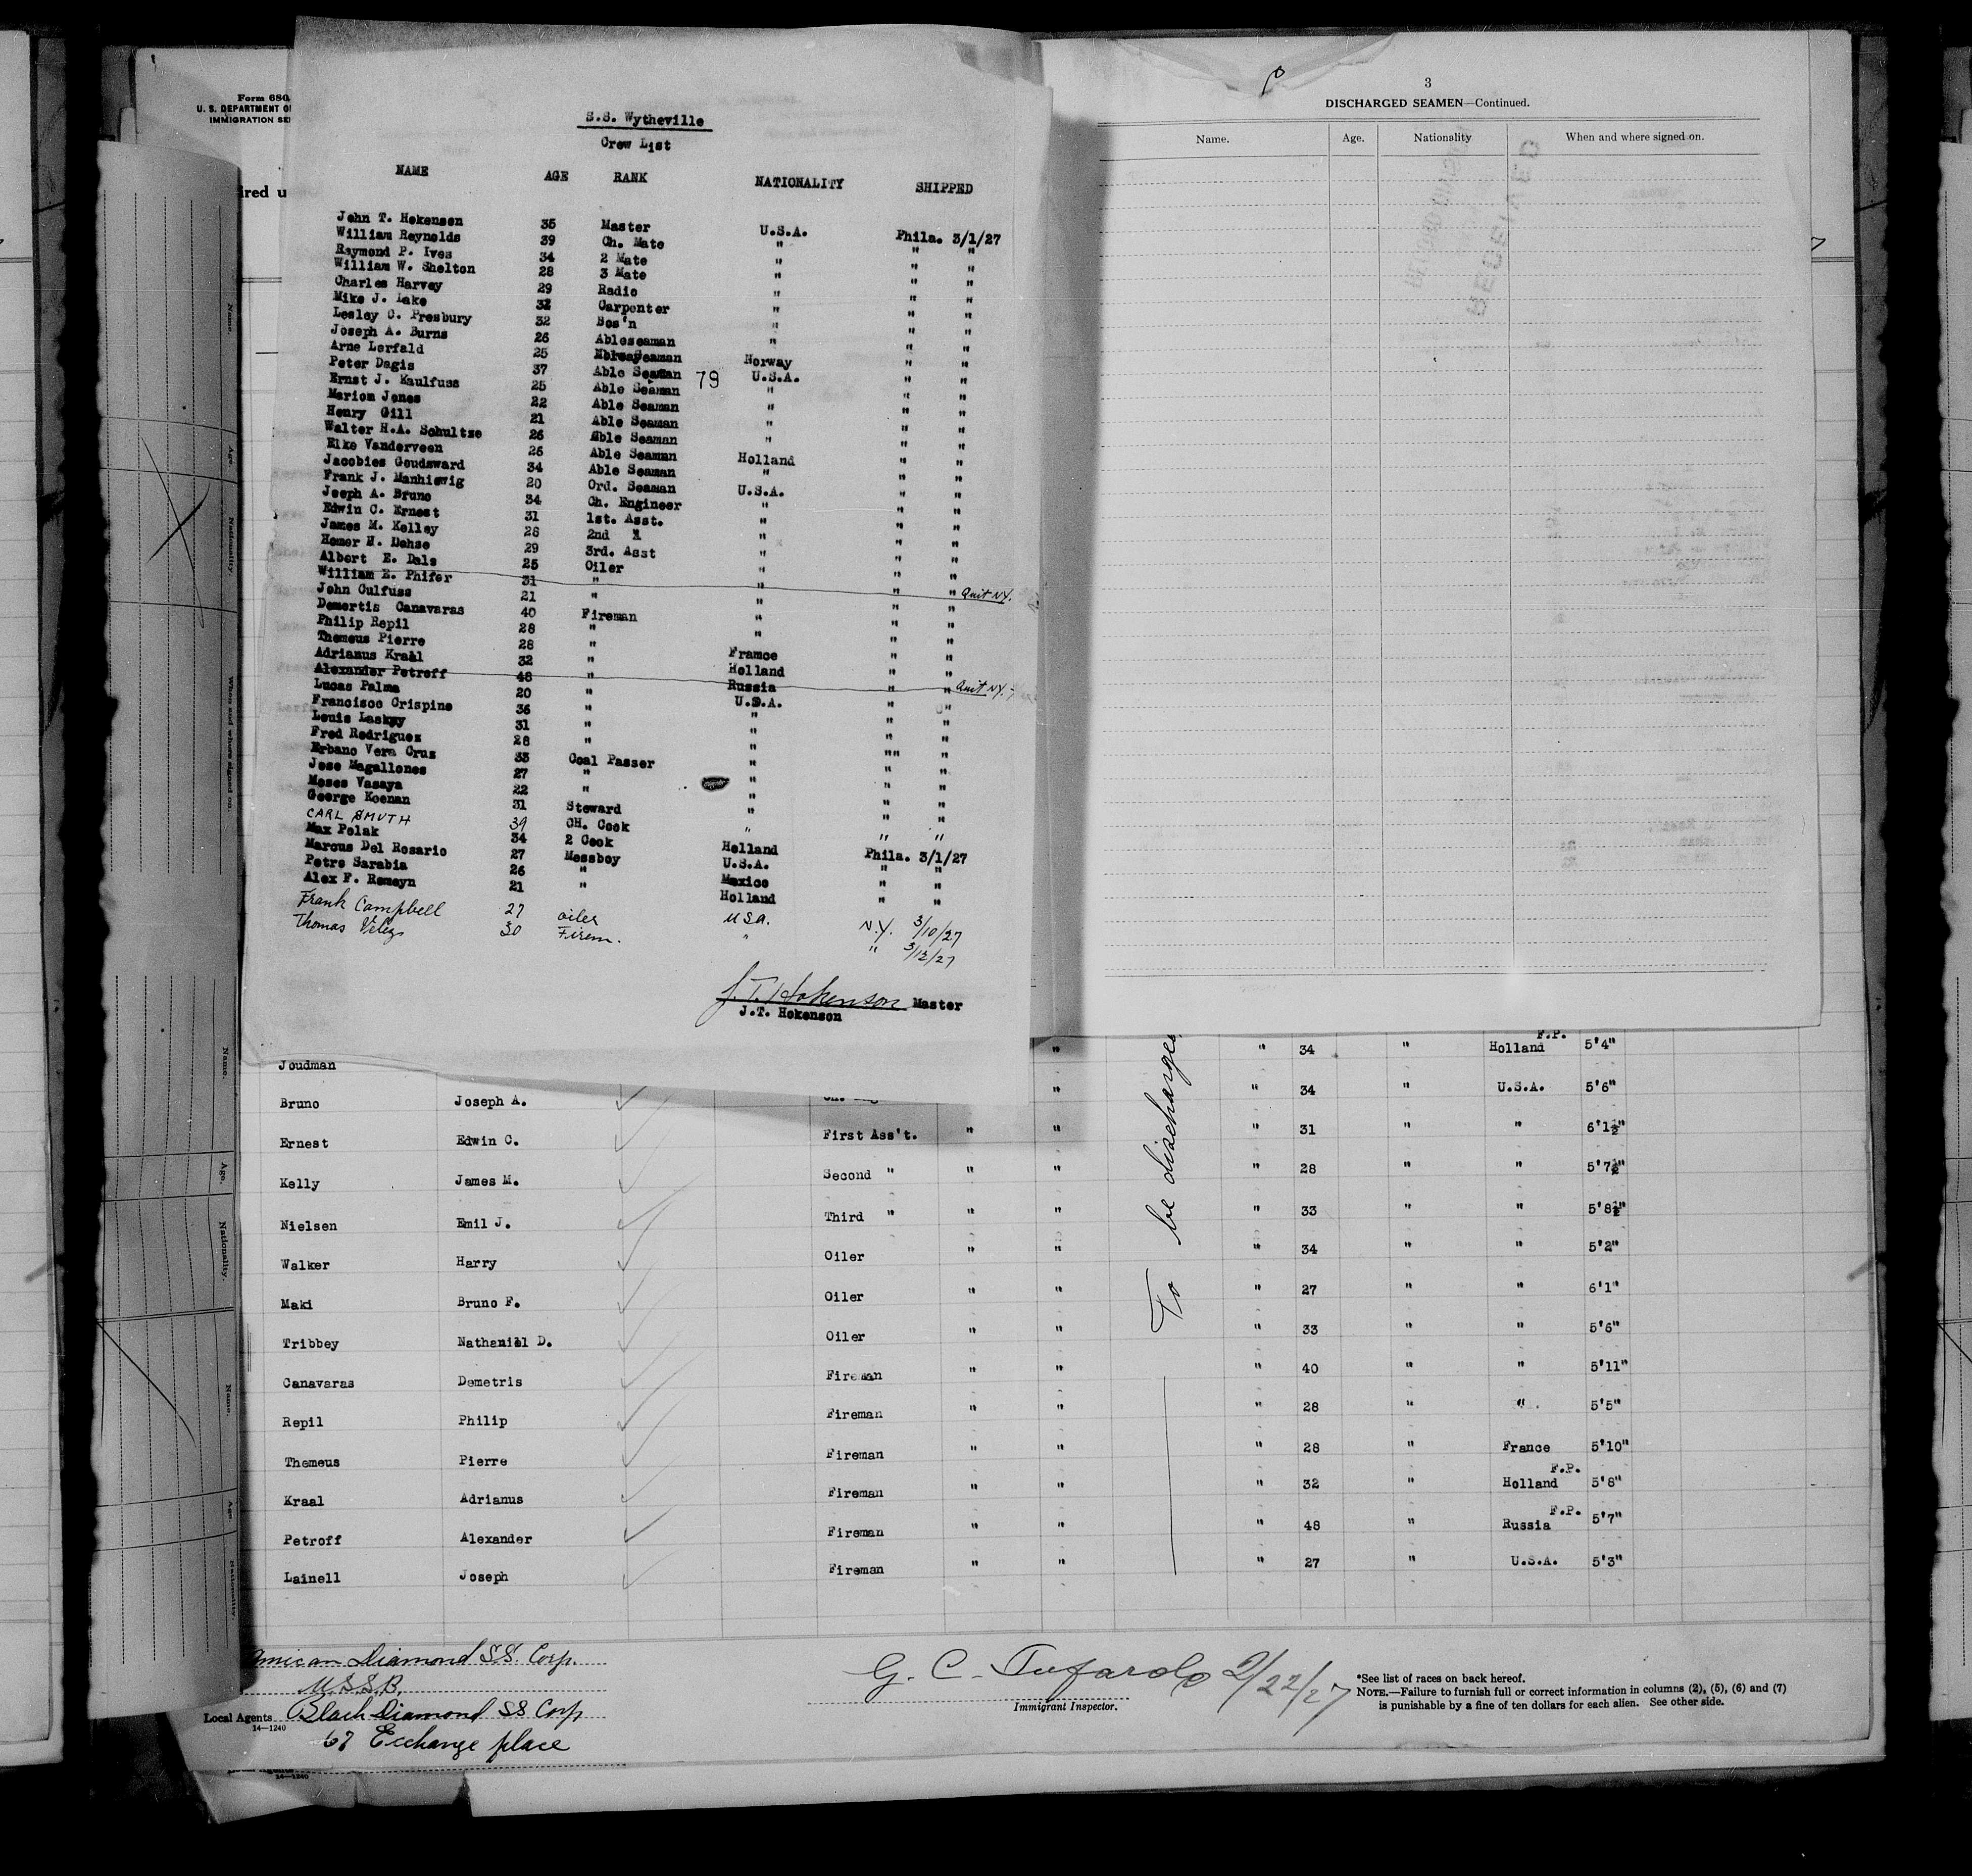 Form 680
U. S. DEPARTMENT O
IMMIGRATION SE
ired u
S.S. Wytheville
Crew List
NAME AGE RANK NATIONALITY SHIPPED
John T. Hokenson 35 Master U.S.A. Phila. 3/1/27
William Reynolds 39 Ch. Mate " " "
Raymond P. Ives 34 2 Mate " " "
William W. Shelton 28 3 Mate " " "
Charles Harvey 29 Radio " " "
Mike J. Lake 32 Carpenter " " "
Lesley C. Presbury 32 Bos'n " " "
Joseph A. Burns 26 Ableseaman " " "
Arne Lerfald 25 Norway " "
Peter Dagis 37 Able Seaman 79 U.S.A. " "
Ernst J. Kaulfuss 25 Able Seaman " " "
Marion Jones 22 Able Seaman " " "
Henry Gill 21 Able Seaman " " "
Walter H.A. Schultze 26 Able Seaman " " "
Elke Vanderveen 26 Able Seaman Holland " "
Jacobies Goudsward 34 Able Seaman " " "
Frank J. Manhiewig 20 Ord. Seaman U.S.A. " "
Joeph A. Bruno 34 Ch. Engineer " " "
Edwin C. Ernest 31 1st. Asst. " " "
James M. Kelley 28 2nd " " "
Homer H. Dehse 29 3rd. Asst " " "
Albert E. Dals 25 Oiler " " "
William E. Phifer 31 " " " " Quit NY.
John Culfuss 21 " " " "
Demertis Canavaras 40 Fireman " " "
Philip Repil 28 " " " "
Themeus Pierre 28 " France " "
Adrianus Kraal 32 " Holland " "
Alexander Petroff 48 " Russia " " Quit NY.-
Lucas Palma 20 " U.S.A. " "
Francisco Crispine 36 " " " "
Louis Laskey 31 " " " "
Fred Rodriguez 28 " " " "
Erbano Vera Cruz 33 Coal Passer " " "
Jose Magallones 27 " " " "
Moses Vasaya 22 " " " "
George Koenan 31 Steward " " "
CARL SMUTH 39 CH. Cook " " "
Max Polak 34 2 Cook Holland Phila. 3/1/27
Marcus Del Rosario 27 Messboy U.S.A. " "
Petro Sarabia 26 " Mexico " "
Alex F. Romeyn 21 " Holland " "
Frank Campbell 27 oiler U S A. N.Y. 3/10/27
Thomas Velez 30 Firem. " " 3/12/27
J. T. Hokenson Master
J.T. Hokenson
3
DISCHARGED SEAMEN—Continued.
Name. Age. Nationality When and where signed on.
RECEIVED
Name. Age. Nationality. When and where signed on.
Name. Age. Nationality.
Name. Age. Nationality.
To be discharged
Joudman " " 34 " F.P. Holland 5'4"
Bruno Joseph A. " 34 " U.S.A. 5'6"
Ernest Edwin C. First Ass't. " " " 31 " " 6'1½"
Kelly James M. Second " " " " 28 " " 5'7½"
Nielsen Emil J. Third " " " " 33 " " 5'8½"
Walker Harry Oiler " " " 34 " " 5'2"
Maki Bruno F. Oiler " " " 27 " " 6'1"
Tribbey Nathaniel D. Oiler " " " 33 " " 5'6"
Canavaras Demetris Fireman " " " 40 " " 5'11"
Repil Philip Fireman " " " 28 " " 5'5"
Themeus Pierre Fireman " " " 28 " France 5'10"
Kraal Adrianus Fireman " " " 32 " F.P. Holland 5'8"
Petroff Alexander Fireman " " " 48 " F.P. Russia 5'7"
Lainell Joseph Fireman " " " 27 " U.S.A. 5'3"
merican Diamond SS. Corp.
U.S.S.B.
Local Agents Black Diamond SS Corp
14—1240
67 Exchange place
14—1240
G. C. Tufarolo 2/22/27
Immigrant Inspector.
*See list of races on back hereof.
NOTE.—Failure to furnish full or correct information in columns (2), (5), (6) and (7)
is punishable by a fine of ten dollars for each alien. See other side.